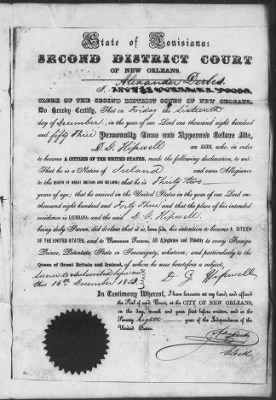 State of Louisiana:
SECOND DISTRICT COURT
OF NEW ORLEANS.
Alexander
I,
CLERK OF THE SECOND DISTRICT COURT OF NEW ORLEANS,
Do Hereby Certify, That on Friday the Sixteenth
day of December, in the year of our Lord one thousand eight hundred
and fifty Three Personally Came and Appeared Before Me,
D. G. Hipwell an ALIEN, who, in order
to become A CITIZEN OF THE UNITED STATES, made the following declaration, to wit:
That he is a Native of Ireland and owes Allegiance
to the QUEEN OF GREAT BRITAIN AND IRELAND; that he is Thirty two
years of age; that he arrived in the United States in the year of our Lord one
thousand eight hundred and Forty Three and that the place of his intended
residence is LOUISIANA; and the said D. G. Hipwell
being duly sworn, did declare that it is, bona fide, his intention to become A CITIZEN
OF THE UNITED STATES, and to Renounce Forever, All Allegiance and Fidelity to every Foreign
Prince, Potentate, State or Sovereignty, whatever, and particularly to the
Queen of Great Britain and Ireland, of whom he was heretofore a subject,
Sworn to & subscribed before me
this 16th December 1853
D. G. Hipwell
In Testimony Whereof, I have hereunto set my hand, and affixed
the Seal of said Court, at the CITY OF NEW ORLEANS,
on the day, month and year first before written, and in the
Seventy Eighth year of the Independence of the
United States.
Clerk